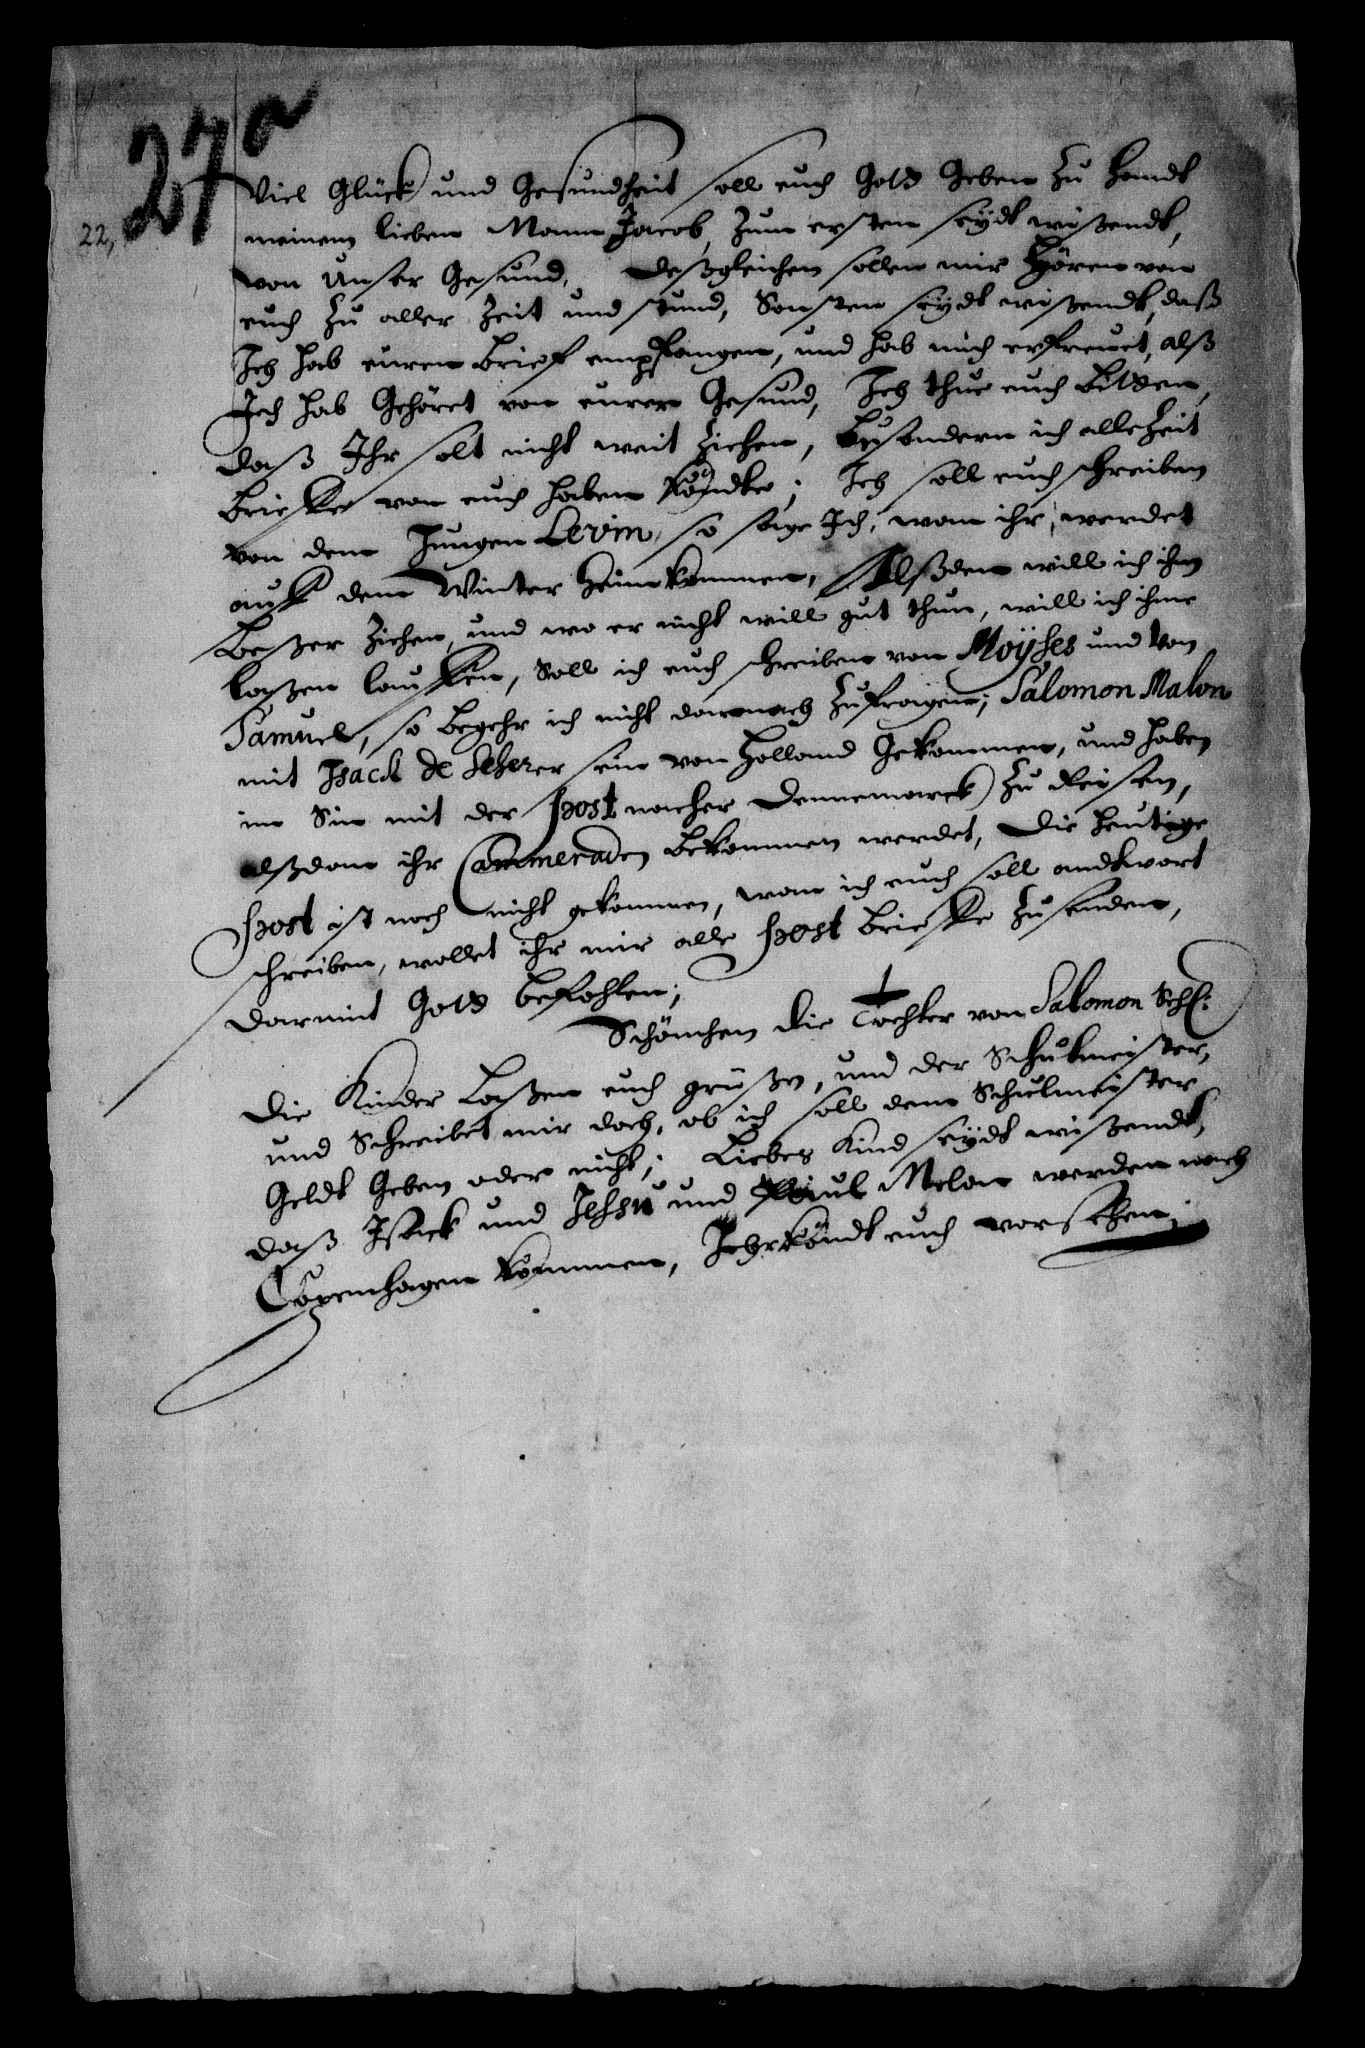 27a
22,
Viel Glück und Gesundheit soll euch Gott Geben zu handt
meinem lieben Mann Jacob, zum ersten seydt wißendt,
von Unser Gesund, deßgleichen sollen mir Hören von
euch zu aller Zeit und stund, Sonsten seydt wißendt, daß
Ich hab euren brief empfangen, und hab mich erfreuet, alß
Ich hab Gehöret von eurer Gesund, Ich thue euch bitten,
daß Ihr solt nicht weit ziehen, besondern ich allezeit
brieffe von euch haben köndte; Ich soll euch schreiben
von dem Jungen Levin, so sage Ich, wan ihr werdet
auff dem Winter heim kommen, Alßden will ich ihm
beßer ziehen, und wo er nicht will gut thun, will ich ihme
laßen lauffen, Soll ich euch schreiben von Moÿses und von
Samuel, so begehr ich nicht darnach zu fragen; Salomon Malon
mit Isack de sein von Holland Gekommen, und haben
im Sin mit der post nacher Dennemarck zu Reisen,
alßdan ihr Cammeraden bekommen werdet, Die heutige
post ist noch nicht gekommen, wan ich euch soll andtwort
schreiben, wollet ihr mir alle post brieffe zu senden,
darmit Gott befohlen;
Schönchen die Tochter von Salomon Schl:
Die Kinder Laßen euch grüßen, und der Schulmeister,
und Schreibet mir doch, ob ich soll dem Schulmeister
Geldt Geben oder nicht; Liebes Kind seydt wißendt,
daß Isack und und Melon werden nach
Copenhagen kommen, Ihr köndt euch vorsehen;